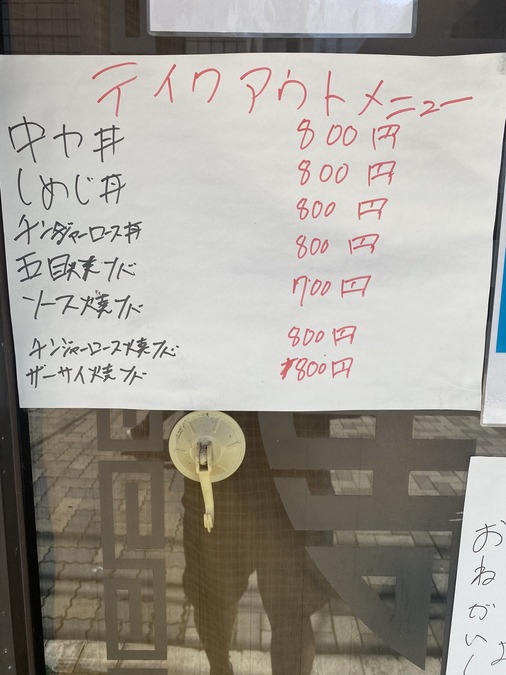 テイクアウトメニュー
中カ丼 800円
しめじ丼 800円
チンジャーロース丼 800円
五目焼ソバ 800円
ソース焼ソバ 700円
チンジャーロース焼ソバ 800円
ザーサイ焼ソバ 800円
おねがいし